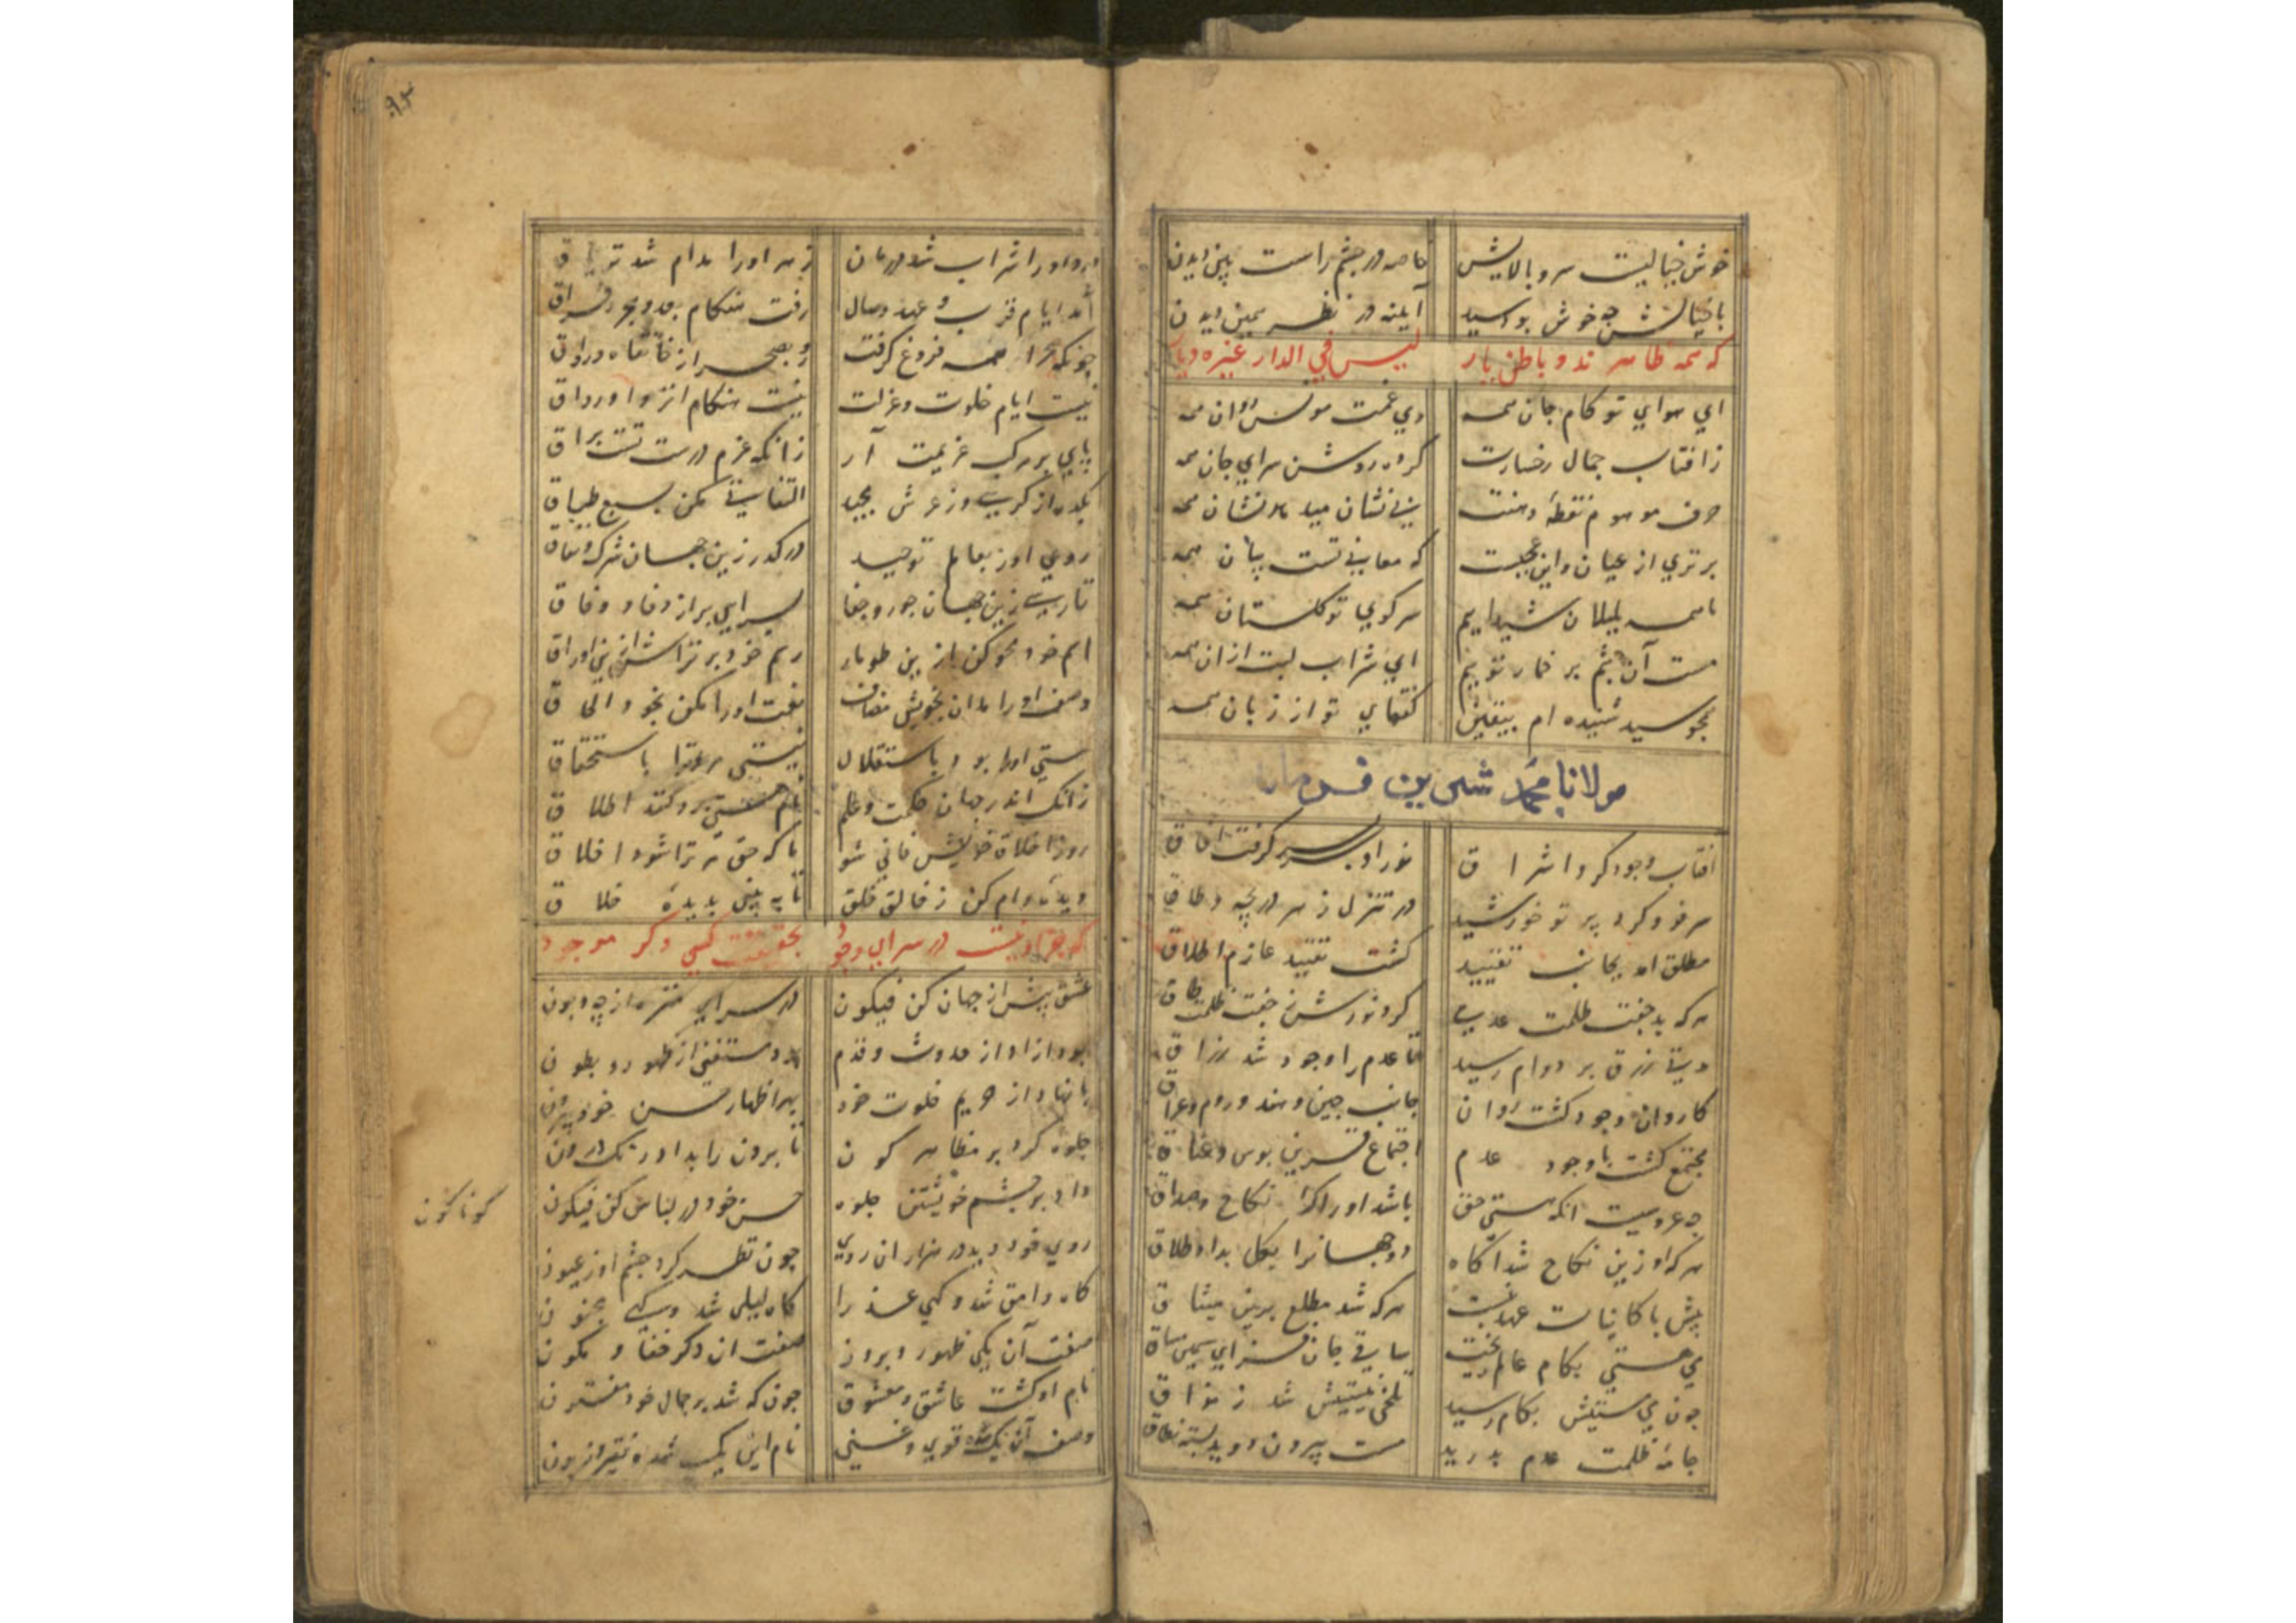 خوش خیالیست سرو بالایش خاصه در چشم راست بین دیدن
با خیالش چه خوش بود سید آینه در نظر همین دیدن
که همه ظاهرند و باطن یار لیس في الدار غیره دیار
ای هوای تو کام جان همه وی غمت مونس روان همه
زافتاب جمال رخسارت کرده روشن سرای جان همه
حرف موهوم نقطهٔ دهنت بی نشان میدهد نشان همه
برتری از عیان واین عجبست که معانی تست بیان همه
ما همه بلبلان شیداییم سر کوی تو کلستان همه
مست آن چشم بر خمار توییم ای شراب لبت ازان همه
همجو سید شنیده ام بیقین کفتهای تو از زبان همه
مولانا محمد شیرین
افتاب وجود کرد اشراق نور او سر بسر کرفت افاق
سر فرو کرد پرتو خورشید در تنزل ز هر دریچه و طاق
مطلق امد بجانب تقیید کشت تقیید عازم اطلاق
هر که بد جفت ظلمت عدمی کرد نورش ز جفت ظلمت طاق
دیتی رزق بر دوام رسید تا عدم را وجود شد رزاق
کاروان وجود کشت روان جانب چین و هند و روم و عراق
مجتمع کشت با وجود عدم اجتماع قرین بوس و عناق
چه عروسیست انکه هستی حق باشد او را کرا نکاح و صداق
هر که او زین نکاح شد آکاه دو جهانرا بکل بداد طلاق
پیش با کاینات عهد نبست هر که شد مطلع برین میثاق
می هستی بکام عالم ریخت ساقی جان فزای سیمین ساق
چون می هستیش بکام رسید تلخی نیستیش شد ز مذاق
جامهٔ ظلمت عدم بدرید مست بیرون دوید بسته نطاق
درد او را شراب شد درمان زهر او را مدام شد تریاق
آمد ایام قرب و عهد وصال رفت هنکام بعد و هجر و فراق
چونکه صحرا همه فروغ کرفت رو بصحرا از خانقاه و رواق
نیست ایام خلوت و عزلت نیست هنکام انزوا و رواق
پای بر مرکب عزیمت آر زانکه عزم درست تست براق
بکذر از کرسی و ز عرش مجید التفاتی مکن بسبع طباق
روی اور بعالم توحید در کذر زین جهان شرک و نفاق
تا رسی زین جهان جور و جفا بسرایی بر از وفا و وفاق
اسم خود محو کن ازین طومار رسم خود بر تراش ازین اوراق
وصف او را مدان بخویش مضاف نعت او را مکن بخود الحاق
هستی او را بود باستقلال نیستی مر ترا باستحقاق
زانک اندر جهان حکمت و علم نام هستی برو کنند اطلاق
رو ز اخلاق خویش فانی شو تا که حق مر ترا شود اخلاق
دیدهٔ وام کن ز خالق خلق تا به بینی بدیدهٔ خلاق
که جز او نیست در سرای وجود بحقیقت کسی دکر موجود
عشق پیش از جهان کن فیکون در سرای منزه از چه و چون
بود ازاد از حدوث و قدم بود مستغنی از ظهور و بطون
پا نهاد از حریم خلوت خود بهر اظهار حسن خود بیرون
جلوه کرد بر مظاهر کون تا برون را بد او رنک درون
داد بر چشم خویشتن جلوه حسن خود در لباس کن فیکون
کوناکون
روی خود دید در هزاران روی چون نظر کرد چشم او ز عیون
کاه وامق شد و کهی عذرا کاه لیلی شد و کهی مجنون
صفت آن یکی ظهور و بروز صفت ان دکر خفا و کمون
نام او کشت عاشق و معشوق چون که شد بر جمال خود مفتون
وصف آن یک شده قوی و غنی نام این یک شده فقیر و زبون